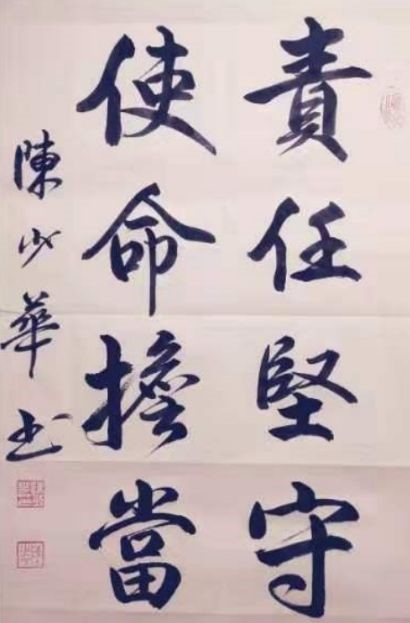 責任堅守
使命擔當
陳少華书